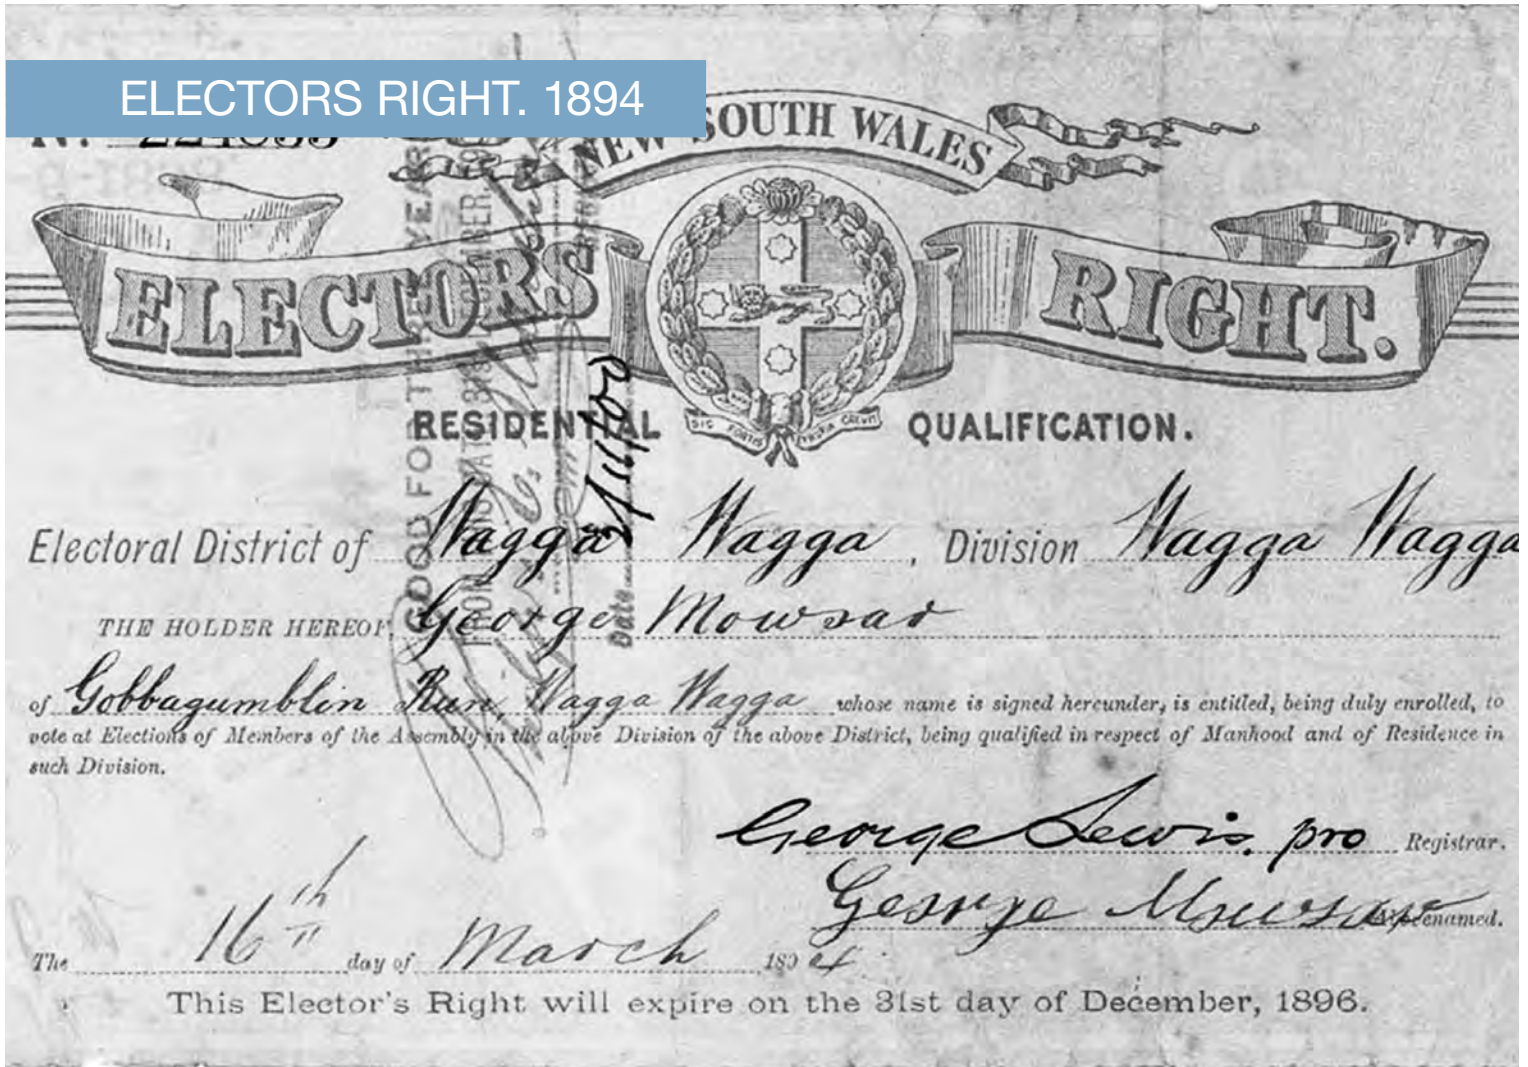 ELECTORS RIGHT. 1894
NEW SOUTH WALES
ELECTORS RIGHT.
RESIDENTIAL QUALIFICATION.
SIC FORTIS ETRURIA CREVIT
Electoral District of Wagga Wagga, Division Wagga Wagga
THE HOLDER HEREOF George Mowsar
of Gobbagumblin Run, Wagga Wagga whose name is signed hereunder, is entitled, being duly enrolled, to
vote at Elections of Members of the Assembly in the above Division of the above District, being qualified in respect of Manhood and of Residence in
such Division.
George Lewis. pro Registrar.
George Mowsar Abovenamed.
The 16th day of March 1894.
This Elector's Right will expire on the 31st day of December, 1896.
GOOD FOR THREE YEAR
FROM 31ST
Date 3/11/02